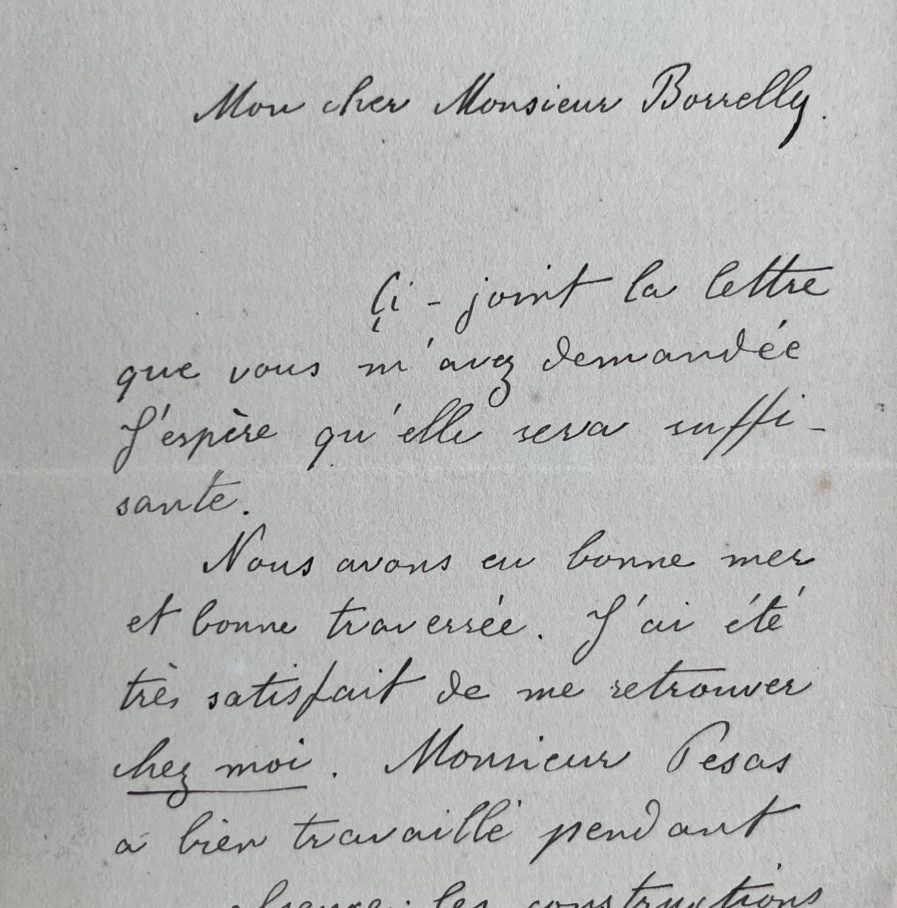 Mon cher Monsieur Borrelly.
Çi - joint la lettre
que vous m'avez demandée
J'espère qu'elle sera suffi-
sante.
Nous avons eu bonne mer
et bonne traversée. J'ai été
très satisfait de me retrouver
chez moi. Monsieur Pesas
a bien travaillé pendant
les constructions